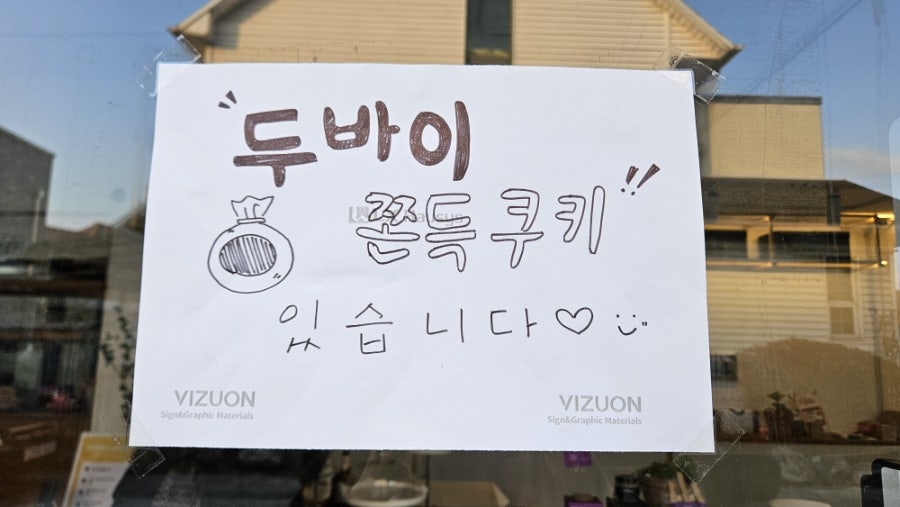 "두바이
쫀득쿠키"
있습니다♡
VIZUON
Sign&Graphic Materials
VIZUON
Sign&Graphic Materials